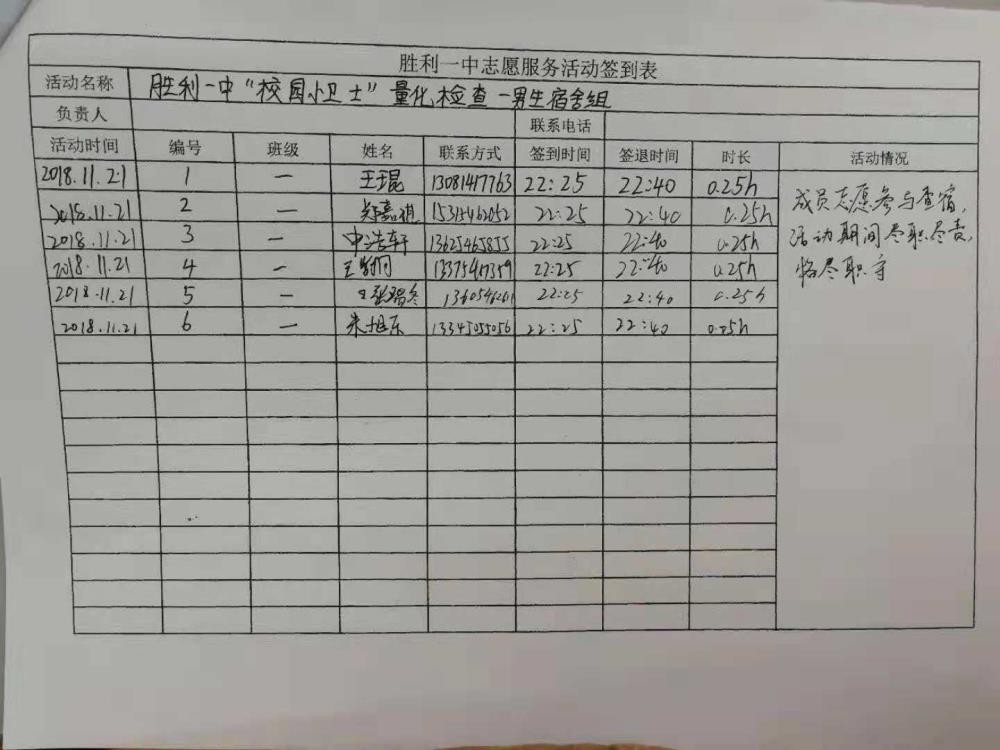 胜利一中志愿服务活动签到表
活动名称 胜利一中“校园小卫士”量化检查-男生宿舍组
负责人 联系电话
活动时间 编号 班级 姓名 联系方式 签到时间 签退时间 时长 活动情况
2018.11.21 1 一 王琨 13081417763 22:25 22:40 0.25h
2018.11.21 2 一 15315462052 22:25 22:40 0.25h
2018.11.21 3 一 浩轩 13625465855 22:25 22:40 0.25h
2018.11.21 4 一 13375417359 22:25 22:40 0.25h
2018.11.21 5 一 22:25 22:40 0.25h
2018.11.21 6 一 13345055056 22:25 22:40 0.25h
成员志愿参与查宿，
活动期间尽职尽责，
恪尽职守